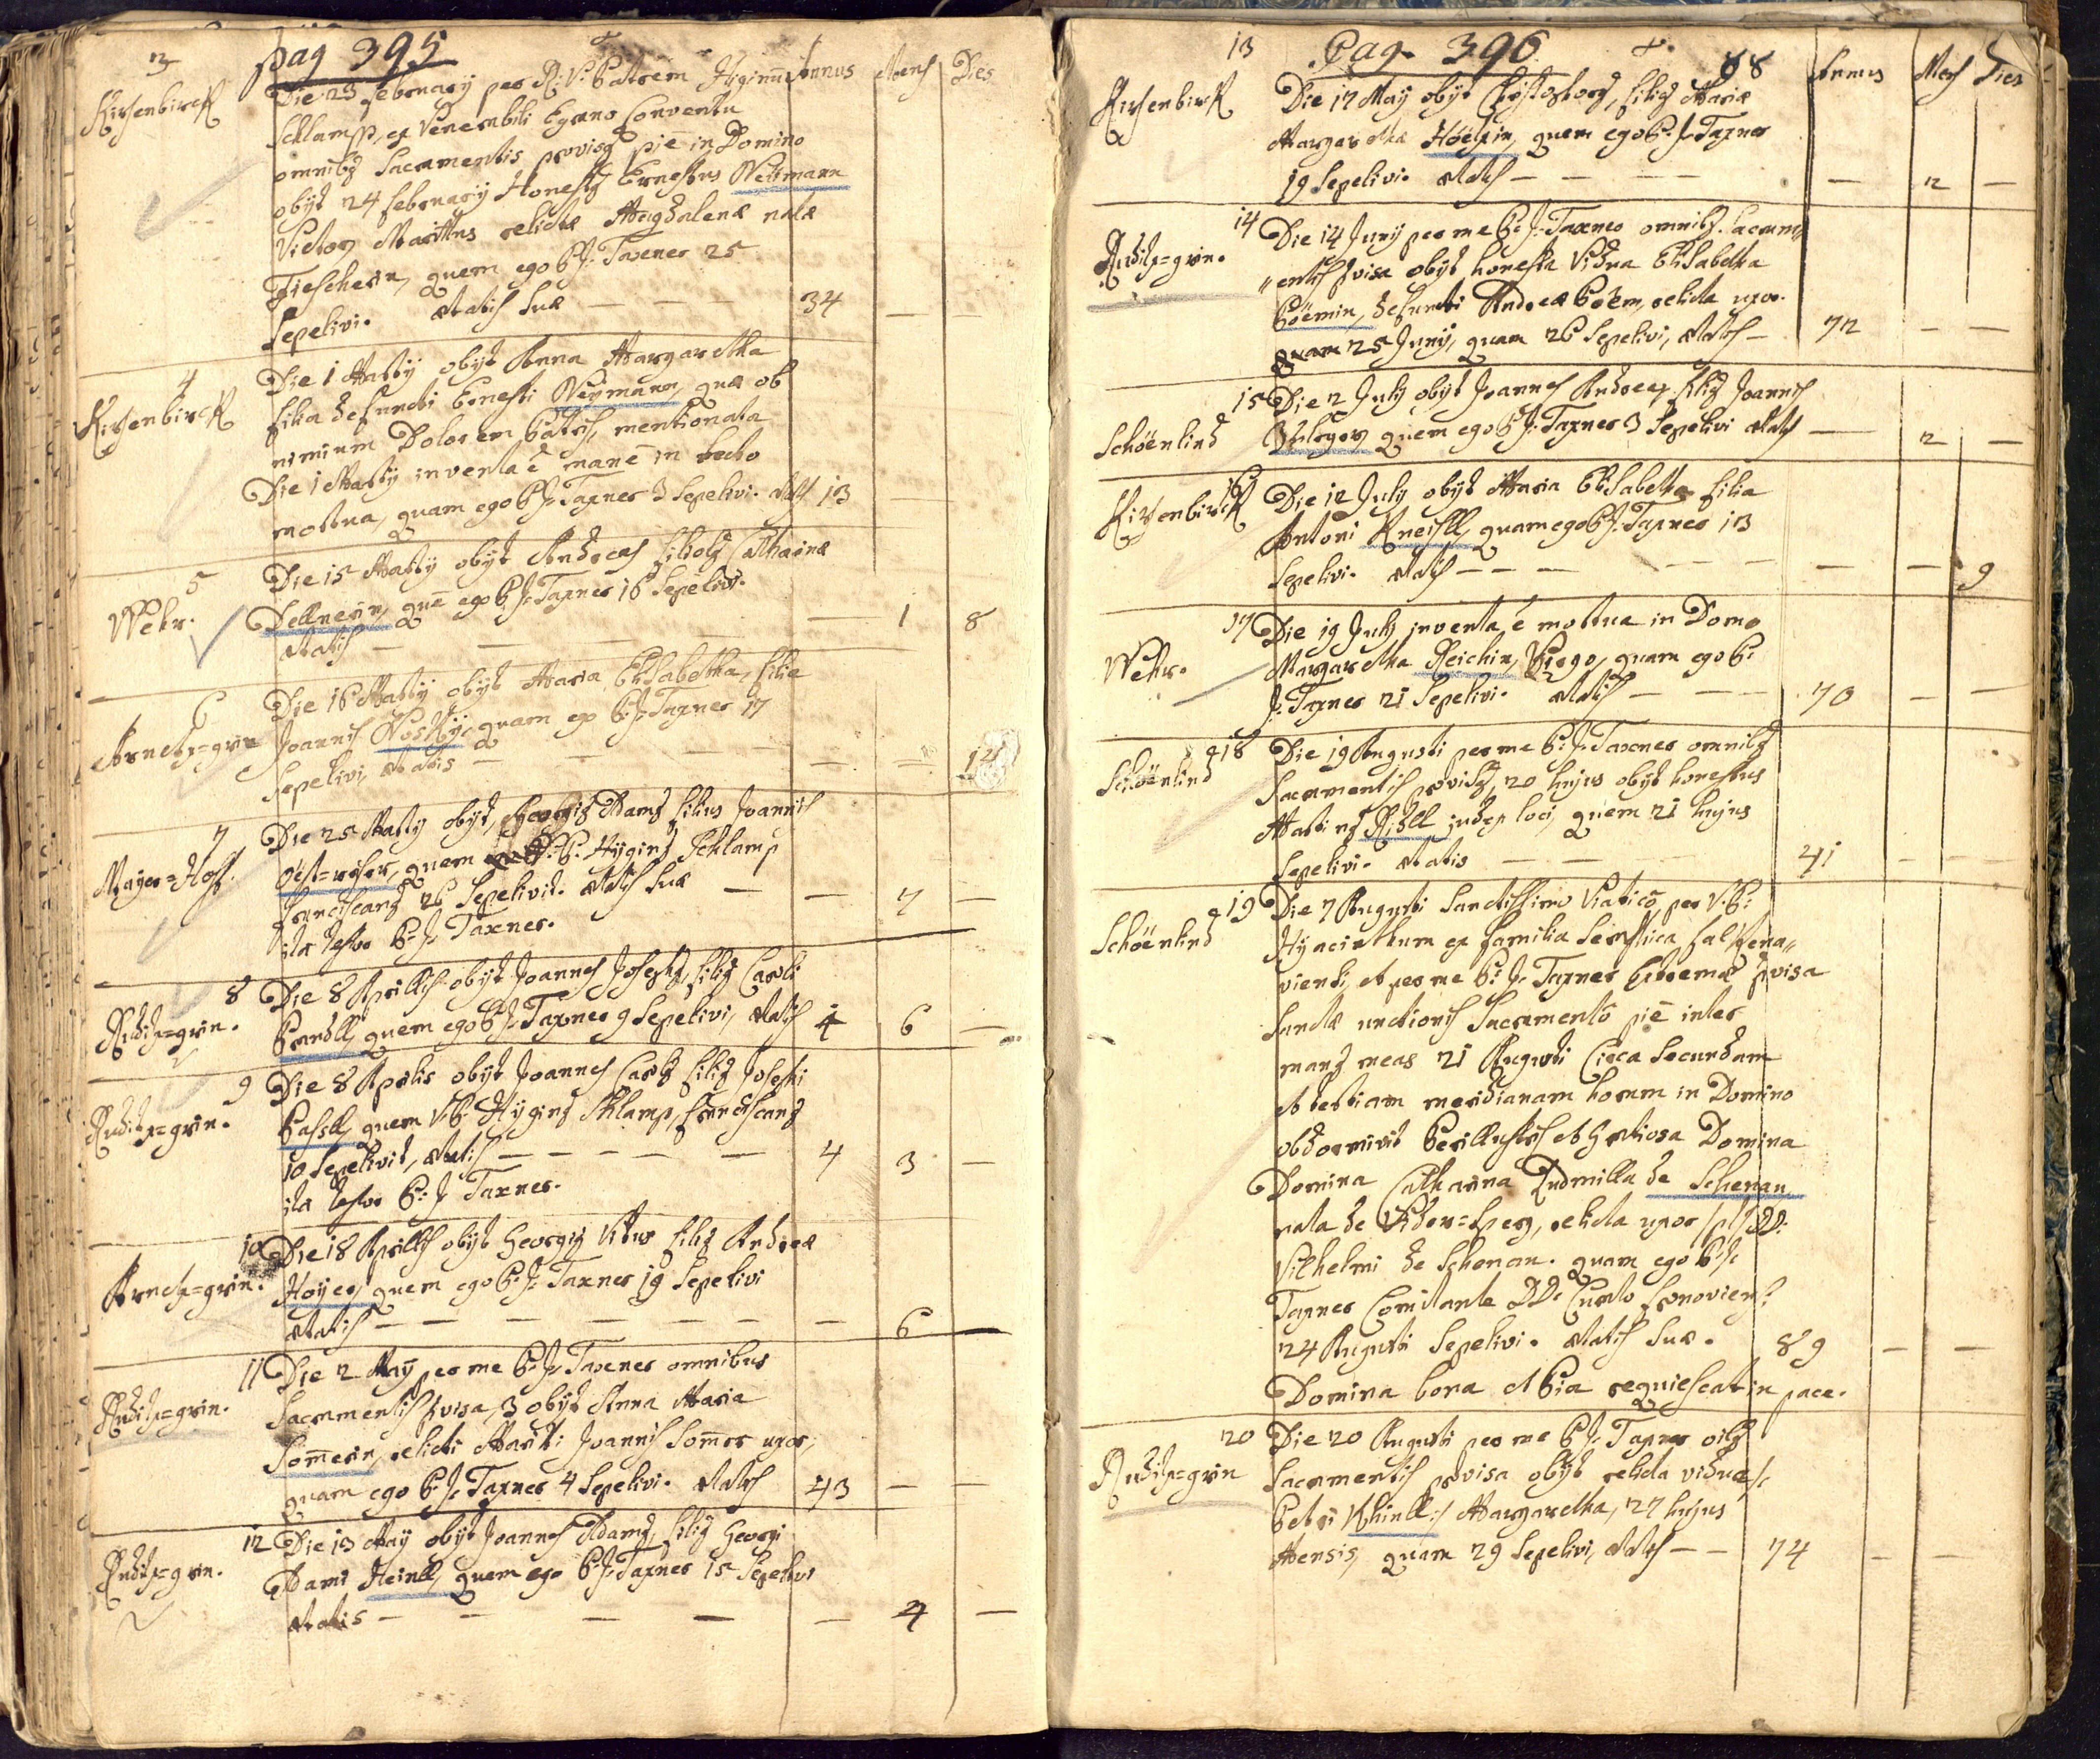 3 pag 395
Kirchenbirck Die 23 february per R: V: Patrem Higinū Annus Mens Dies
Schlamp, ex Venerabili Egrano Conventu
omnibꝫ Sacramentis provisꝫ pie in Domino
obyt 24 february Honestꝫ Ernestus Neymann
Victor Maritus relictæ Magdalenæ natæ
Fiescherin, quem ego P: J: Taxner 25
Sepelivi. Ætatis suæ — — — 34 — —
4
Kirchenbirck Die 1 Marty obyt Anna Margaretha
filia defuncti Ernesti Neymann, quæ ob
nimium Dolorem Patris, mentionata
Die 1 Marty inventa ē manē in lecto
mortua, quam ego P: J: Taxner 3 Sepelivi. Ætat 13
5
Wehr. Die 15 Marty obyt Andreas filiolꝫ Catharinæ
Dellnerin, quē ego P: J: Taxner 16 Sepelivi.
Ætatis — — — — 1 8
6
Arnetz=grün Die 16 Marty obyt Maria Elisabetha, filia
Joannis Noskÿ, quam ego P: J: Taxner 17
Sepelivi, Ætatis — — — — — 12
7
Mayer=Hoff. Die 25 Marty obyt, Georgiꝫ Adamꝫ filius Joannis
Öst=reicher, quem R: P: Hyginꝫ Schlamp
Franciscanꝫ 26 Sepelivit. Ætatis suæ — — 7 —
ita testor P: J: Taxner.
8
Ruditz=grün. Die 8 Aprillis obyt Joannes Josephꝫ, filiꝫ Caroli
Brandll, quem ego P: J: Taxner 9 Sepelivi, Ætatis 4 6 —
9
Ruditz=grün. Die 8 Aprilis obyt Joannes Carlꝫ filiꝫ Josephi
Passll, quem V: P: Hyginꝫ Schlamp, franciscanꝫ
10 Sepelivit, Ætatis — — — — — 4 3 —
ita testor P: J Taxner.
10
Arnetz=grün. Die 18 Aprillis obyt Georgiꝫ Vitus filiꝫ Andreæ
Hoyer, quem ego P: J: Taxner 19 Sepelivi
Ætatis — — — — — — — 6 —
11
Ruditz=grün. Die 2 May per me P: J: Taxner omnibus
Sacramentis pvisa, 3 obyt Anna Maria
Som̄erin, relicti Mariti Joannis Som̄er uxor,
quam ego P: J: Taxner 4 Sepelivi. Ætatis 43 — —
12
Ruditz=grün. Die 13 May obyt Joannes Adamꝫ, filiꝫ Georgi
Adami Heinll, quem ego P: J: Taxner 15 Sepelivi
Ætatis — — — — — 4 —
13 Pag. 396. 88 Annus Mens Dies
Kirchenbirck Die 17 May obyt Christophorꝫ, filiꝫ Mariæ
Margarethæ Höerin, quem ego P: J: Taxner
19 Sepelivi. Ætatis — — — — 2 —
14
Ruditz=grün. Die 14 Juny per me P: J: Taxner omnibꝫ Sacram„
„entis pvisa obyt honesta Vidua Elisabetha
Böemin, defuncti Andreæ Böem, relicta uxor.
quam 25 Juny, quam 26 Sepelivi, Ætatis — 72 — —
15
Schöenlind Die 2 July obyt Joannes Andreas, filiꝫ Joannis
quem ego P: J: Taxner 3 Sepelivi Ætatis — 2 —
16
Kirchenbirck Die 12 July obyt Maria Elisabetha filia
Antoni Kneissll, quam ego P: J: Taxner 13
Sepelivi. Ætatis — — — — — — — — 9
17
Wehr. Die 19 July inventa ē mortua in Domo
Margaretha Reichin, Virgo, quam ego P:
J: Taxner 21 Sepelivi. Ætatis — — — 70 — —
18
Schöenlind Die 19 Augusti per me P: J: Taxner omnibꝫ
Sacramentis pvisꝫ, 20 hujus obyt honestus
Martinꝫ Riedll judex loci, quem 21 hujus
Sepelivi. Ætatis — — — 41 — —
19
Schöenlind Die 7 Augusti Sanctissimo Viatico per V: P:
Hyacinthum ex familia Seraphica Falckena„
viensi, et per me P: J: Taxner Extremæ pvisa
Sanctæ unctionis Sacramento pie inter
manꝫ meas 21 Augusti Circa Secundam
et tertiam meridianam horam in Domino
obdormivit Perillustris et Gratiosa Domina
Domina Catharina Ludmilla de Schenau
nata de Vider=Sperg, relicta uxor /pl/ DD:
Vilhelmi de Schenau. quam ego P: J:
Taxner Comitante DD: Curato
24 Augusti Sepelivi. Ætatis suæ. 89 — —
Domina bona et Pia requiescat in pace.
20
Ruditz=grün Die 20 Augusti per me P: J: Taxner oibꝫ
Sacramentis pvisa obyt relicta vidua /:
Petri Khinll :/ Margaretha, 27 hujus
Mensis, quam 29 Sepelivi, Ætatis — — 74 — —